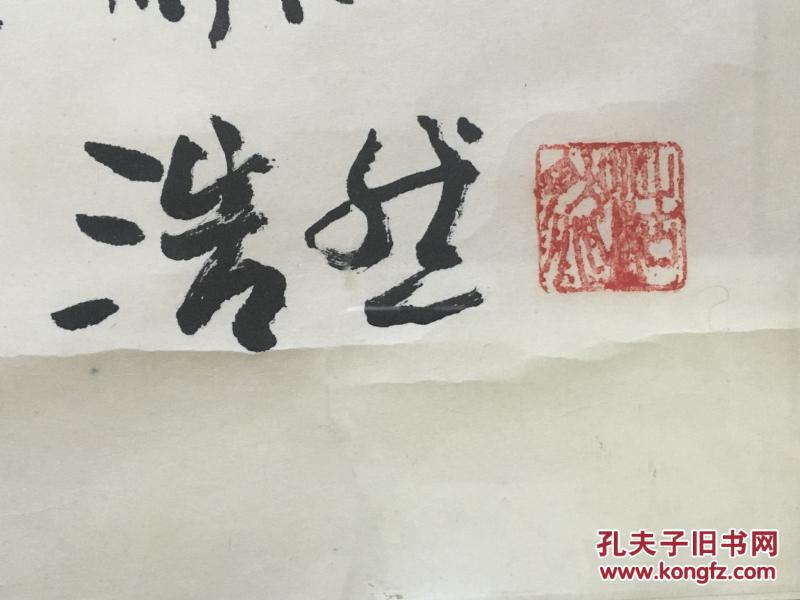 浩然
孔夫子旧书网
www.kongfz.com